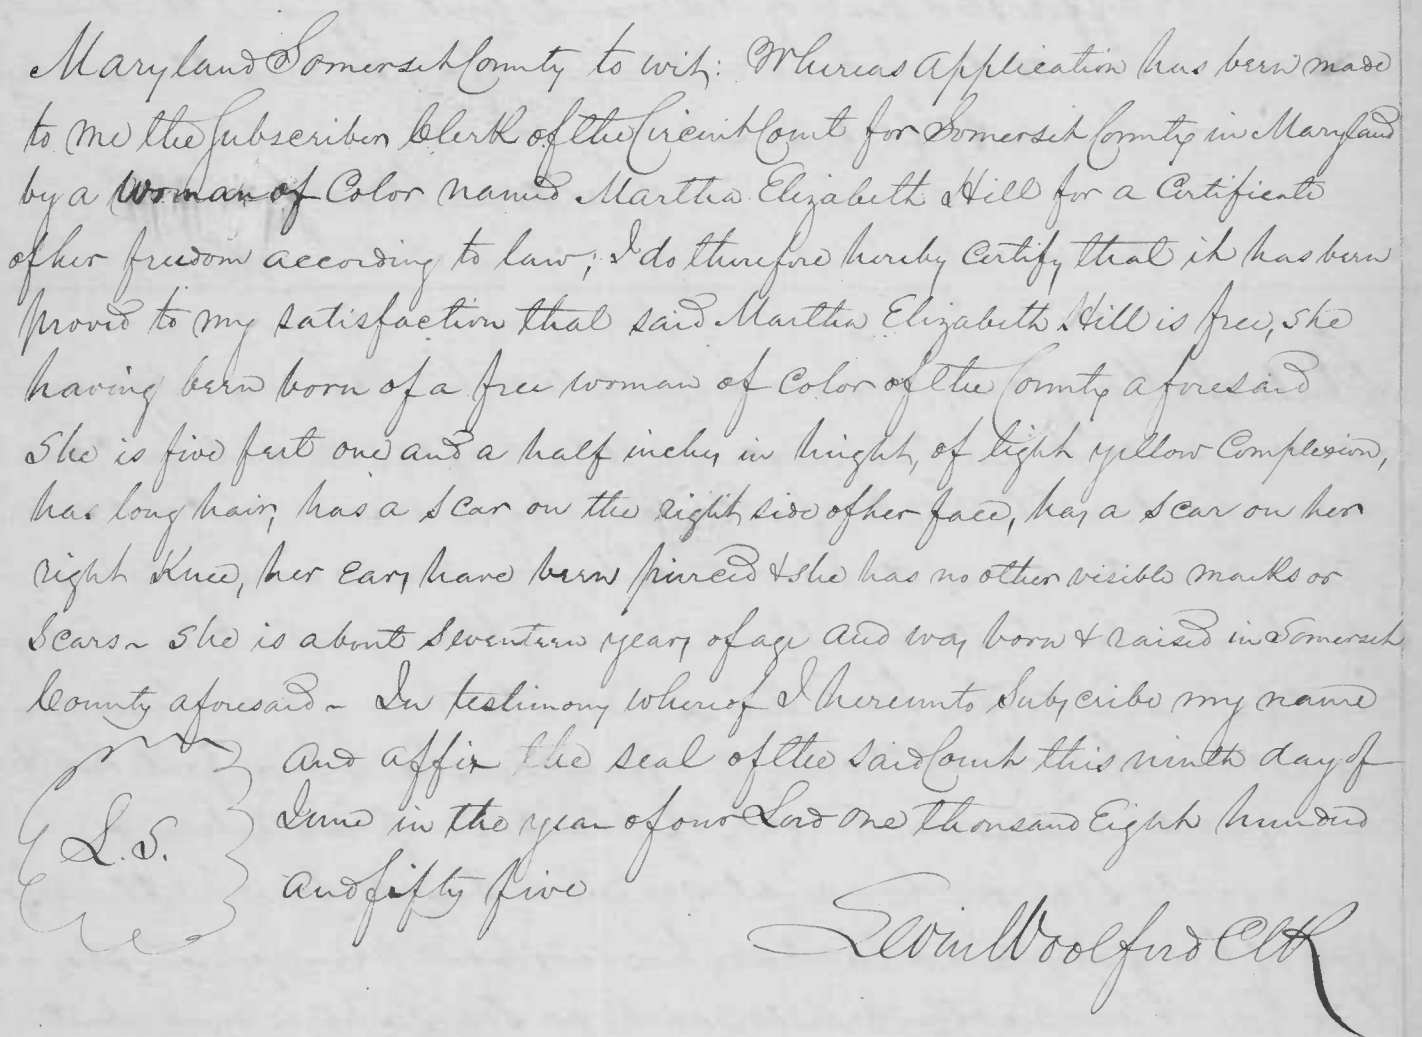 Maryland Somerset County to wit: Whereas application has been made
to me the Subscriber, Clerk of the Circuit Court for Somerset County in Maryland
by a woman of Color named Martha Elizabeth Hill for a Certificate
of her freedom according to law; I do therefore hereby Certify that it has been
proved to my satisfaction that said Martha Elizabeth Hill is free, she
having been born of a free woman of color of the County aforesaid
She is five feet one and a half inches in hight, of light yellow Complexion,
has long hair, has a scar on the right side of her face, has a scar on her
right Knee, her Ears have been pierced & she has no other visible marks or
Scars ~ She is about Seventeen years of age and was born & raised in Somerset
County aforesaid ~ In testimony whereof I hereunto Subscribe my name
and affix the seal of the said Court this ninth day of
June in the year of our Lord one thousand Eight hundred
and fifty five
L.S.
Levin Woolford Clk